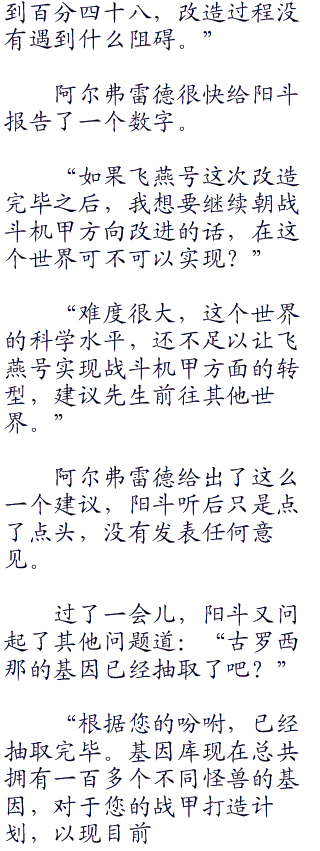 到百分四十八，改造过程没
有遇到什么阻碍。”
阿尔弗雷德很快给阳斗
报告了一个数字。
“如果飞燕号这次改造
完毕之后，我想要继续朝战
斗机甲方向改进的话，在这
个世界可不可以实现？”
“难度很大，这个世界
的科学水平，还不足以让飞
燕号实现战斗机甲方面的转
型，建议先生前往其他世
界。”
阿尔弗雷德给出了这么
一个建议，阳斗听后只是点
了点头，没有发表任何意
见。
过了一会儿，阳斗又问
起了其他问题道：“古罗西
那的基因已经抽取了吧？”
“根据您的吩咐，已经
抽取完毕。基因库现在总共
拥有一百多个不同怪兽的基
因，对于您的战甲打造计
划，以现目前